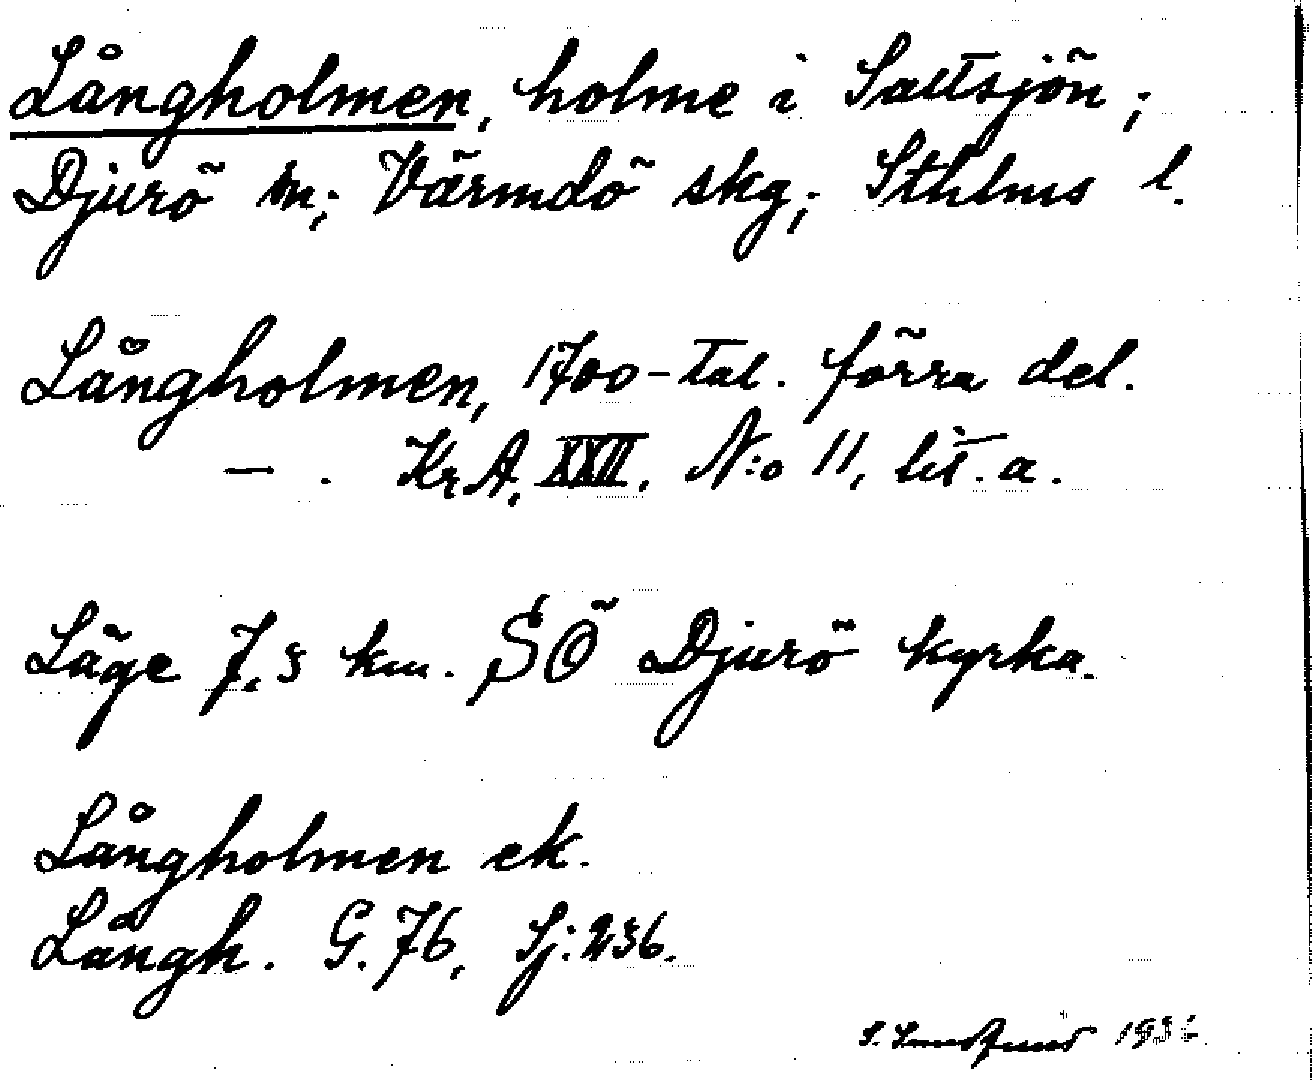 Långholmen, holme i Saltsjön;
Djurö sn; Värmdö skg; Sthlms l.
Långholmen, 1700-tal. förra del.
— . KrA, XXII. N:o 11, lit. a.
Läge 7,5 km. SÖ Djurö kyrka.
Långholmen ek.
Långh. G. 76, Sj: 236.